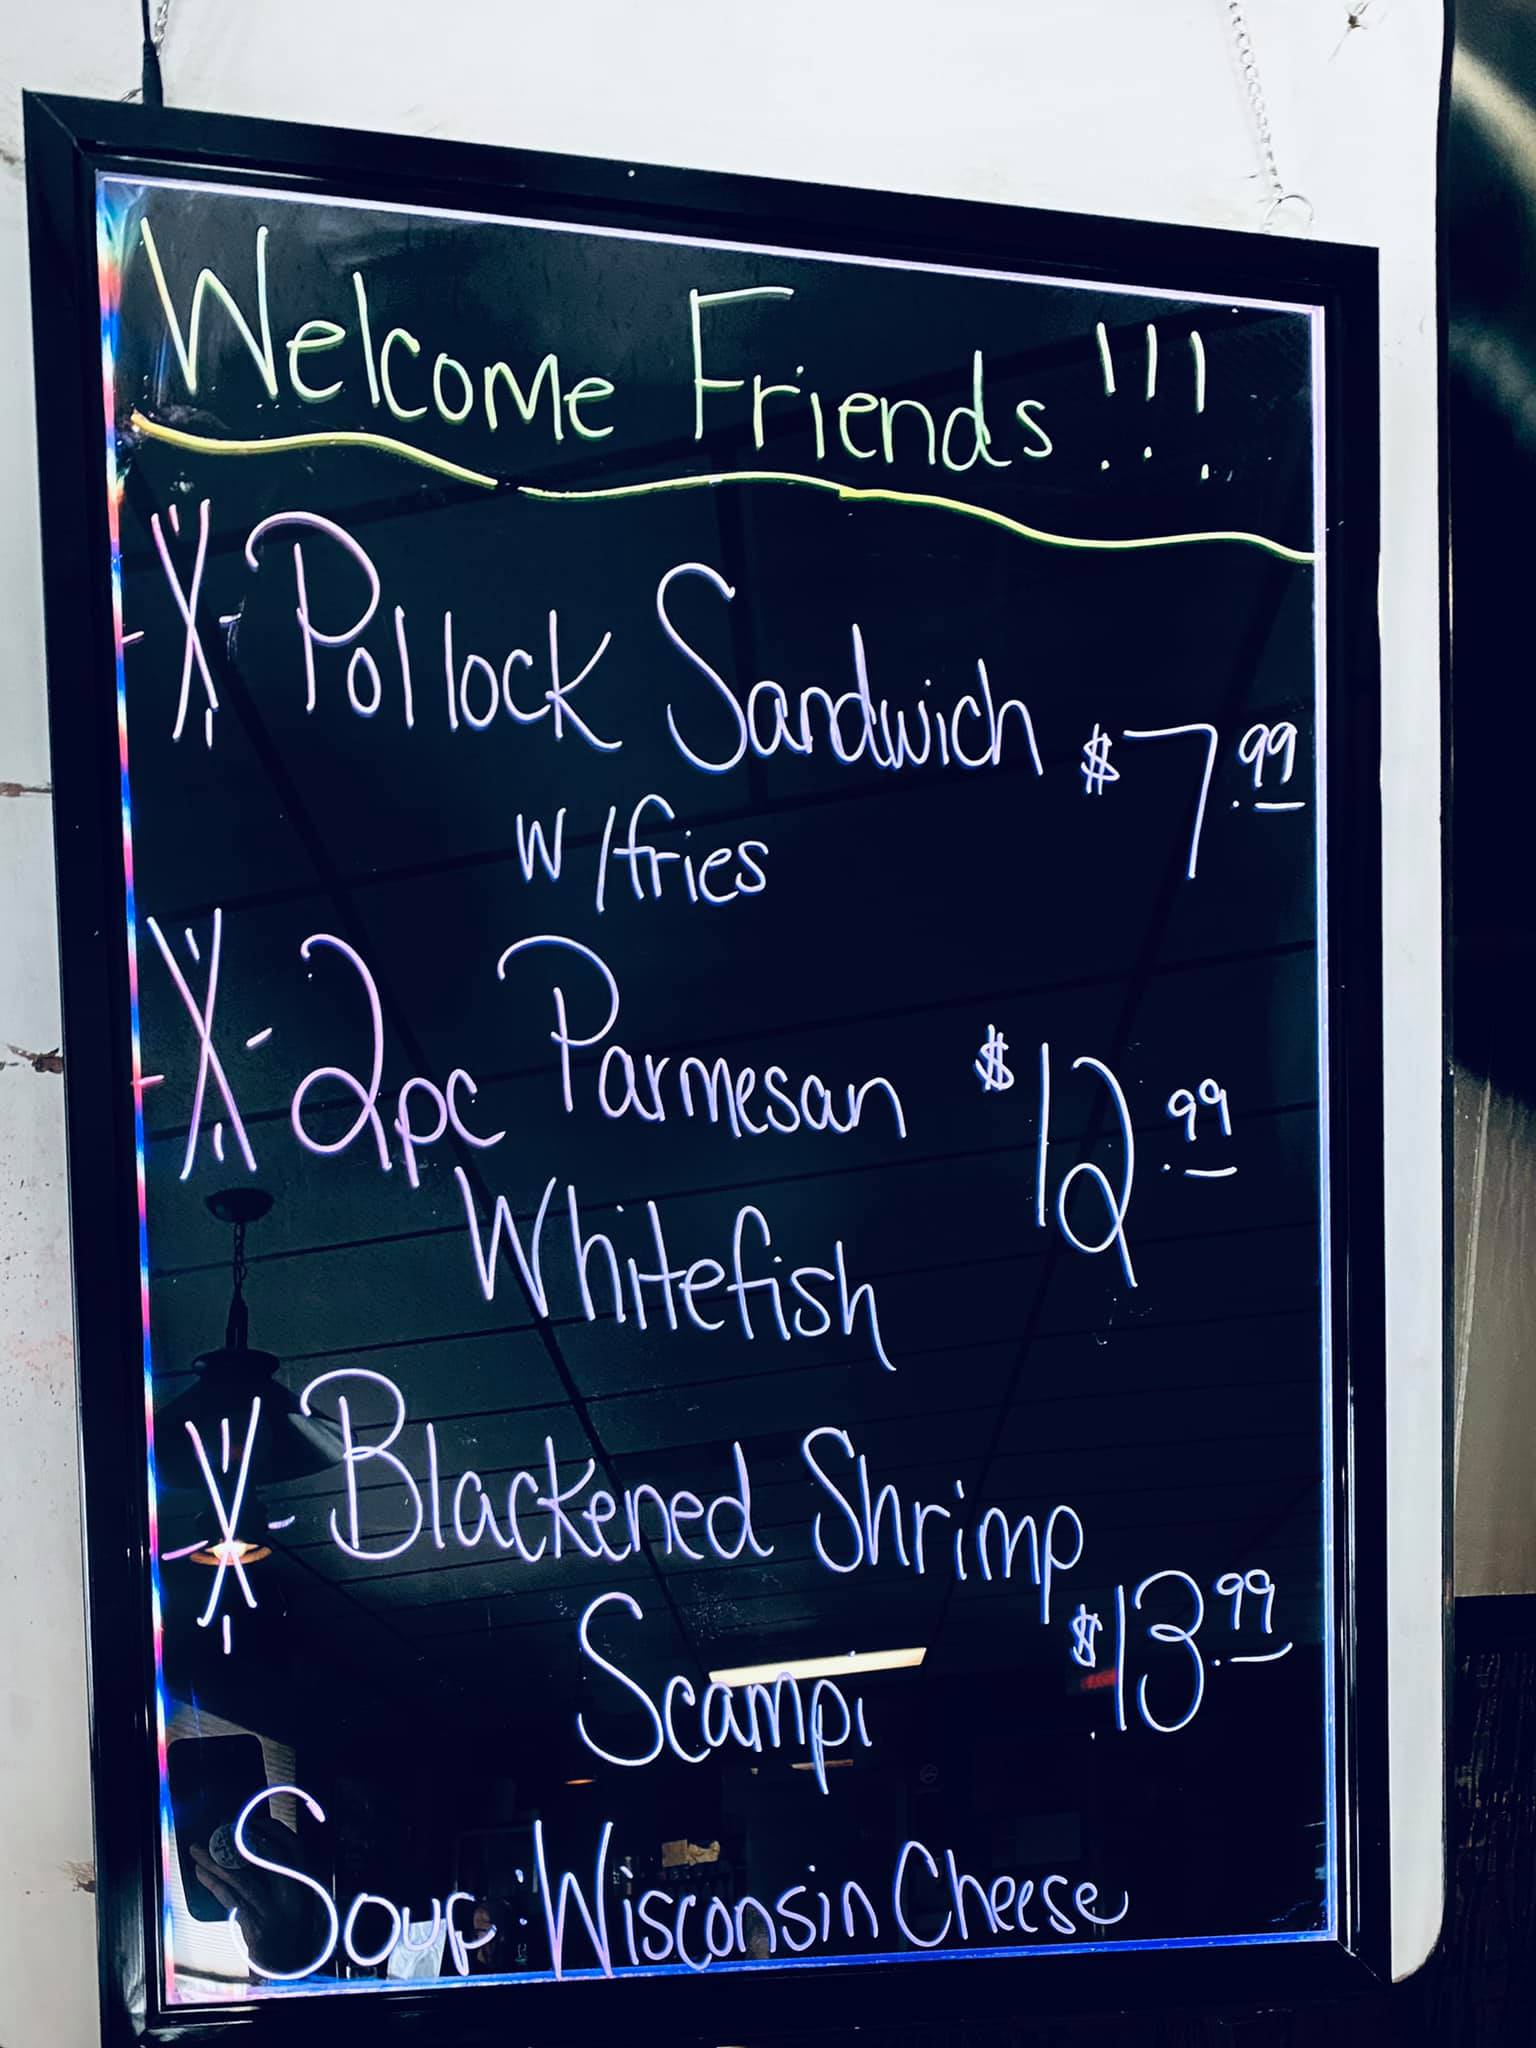 Welcome Friends!!!
Pollock Sandwich $7.99
w/fries
2pc Parmesan $12.99
Whitefish
Blackened Shrimp
Scampi $13.99
Soup: Wisconsin Cheese